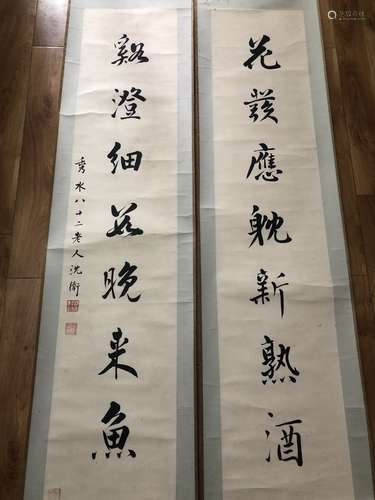 花發應躭新熟酒
谿澄細數晚来魚
秀水八十二老人沈衛